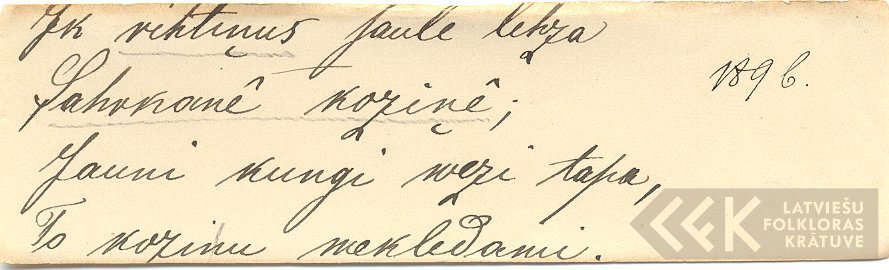 Ik rihtiņus saule lehza
Sahrkanê koziņê;
1896.
Jauni kungi wezi tapa,
To koziņu mekledami.
LATVIEŠU
FOLKLORAS
KRĀTUVE